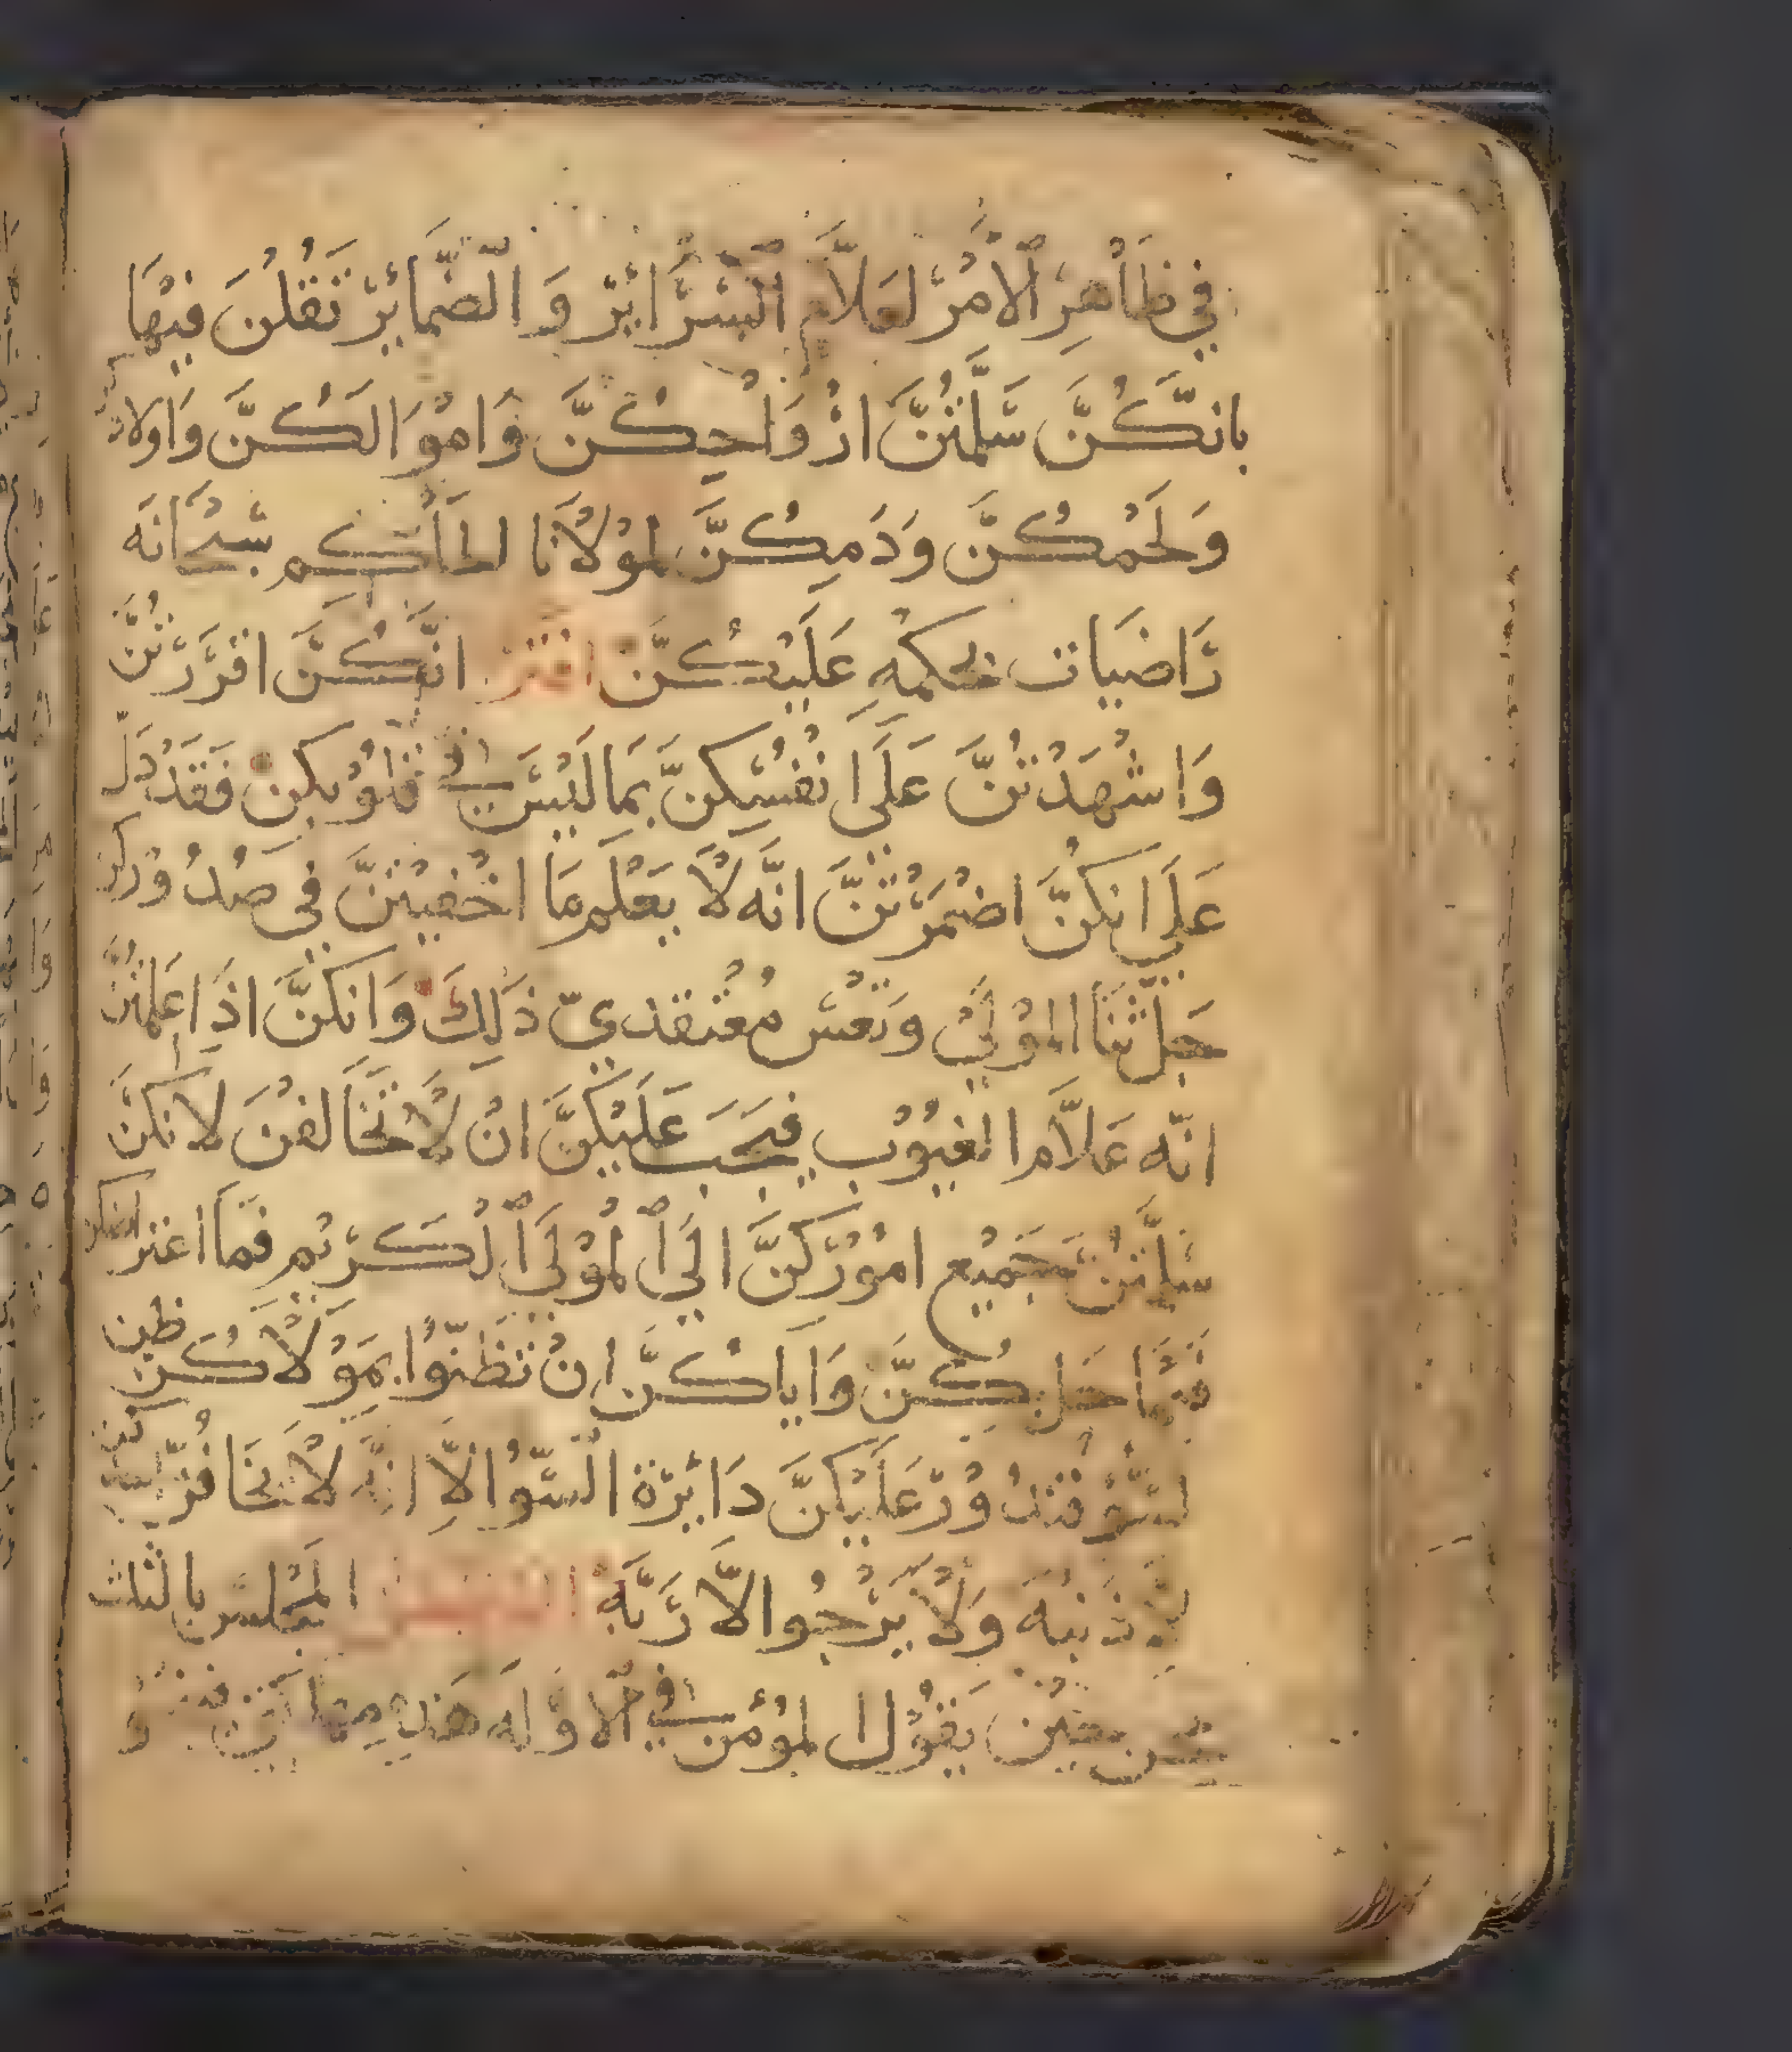 في ظَاهِرِ الْامْرِ لعَلاَّم السَّرَايرْ وَالضَّمَايِرْ تَقُلنَ فِيْهَا
بانَّكُنَّ سَلَّمْتُنَّ ارْوَاحِكُنَّ وَامْوَالَكُنَّ وَاولاد
وَلَحَمْكُنَّ وَدَمِكُنَّ لموْلَانَا الحَاكِم سُبْحَانَه
رَاضيَات بحكمِهِ عَلَيْكُنَّ انَّكُنَّ اقرَرْتُنَّ
وَاشْهَدْتُنَّ عَلَى انْفُسِكنَّ بمَا لَيْسَ في قلُوْبكن فَقَدْ دَلّ
عَلَى انكنَّ اضْمَرْتُنَّ انَّه لَا يَعْلم مَا اخْفيْتنَّ في صُدُوْركن
جَلَّ ثنَا الموْلَى وَتَعْس مُعْتقدي ذَلِكَ وَانكنَّ اذَا عَلمْتُنَّ
انّه عَلاَّم الغيُوْب فيَجَب عَلَيْكنَّ انْ لَا تخَالفْنَ لانكنَّ
سَلَّمْتُنَّ جَميْع امُوْرَكنَّ الَى الْموْلَى الْكَرِيْم فَمَا اعتراضكن
فيمَا وَايَاكُنَّ انْ تَظنّوُا بمَوْلَاكُن ظن
السّوْ فتدُوْرْ عَلَيْكنَّ دَايْرَة السّوُ الاِّ انَّه لَا يخَافُ
الاَّ ذَنبْهَ وَلَا يَرْجُوا الاَّ رَبَّهُ المجْلس بالثلث
حيْن يَقوْل المؤمن في الْاوَّلَه